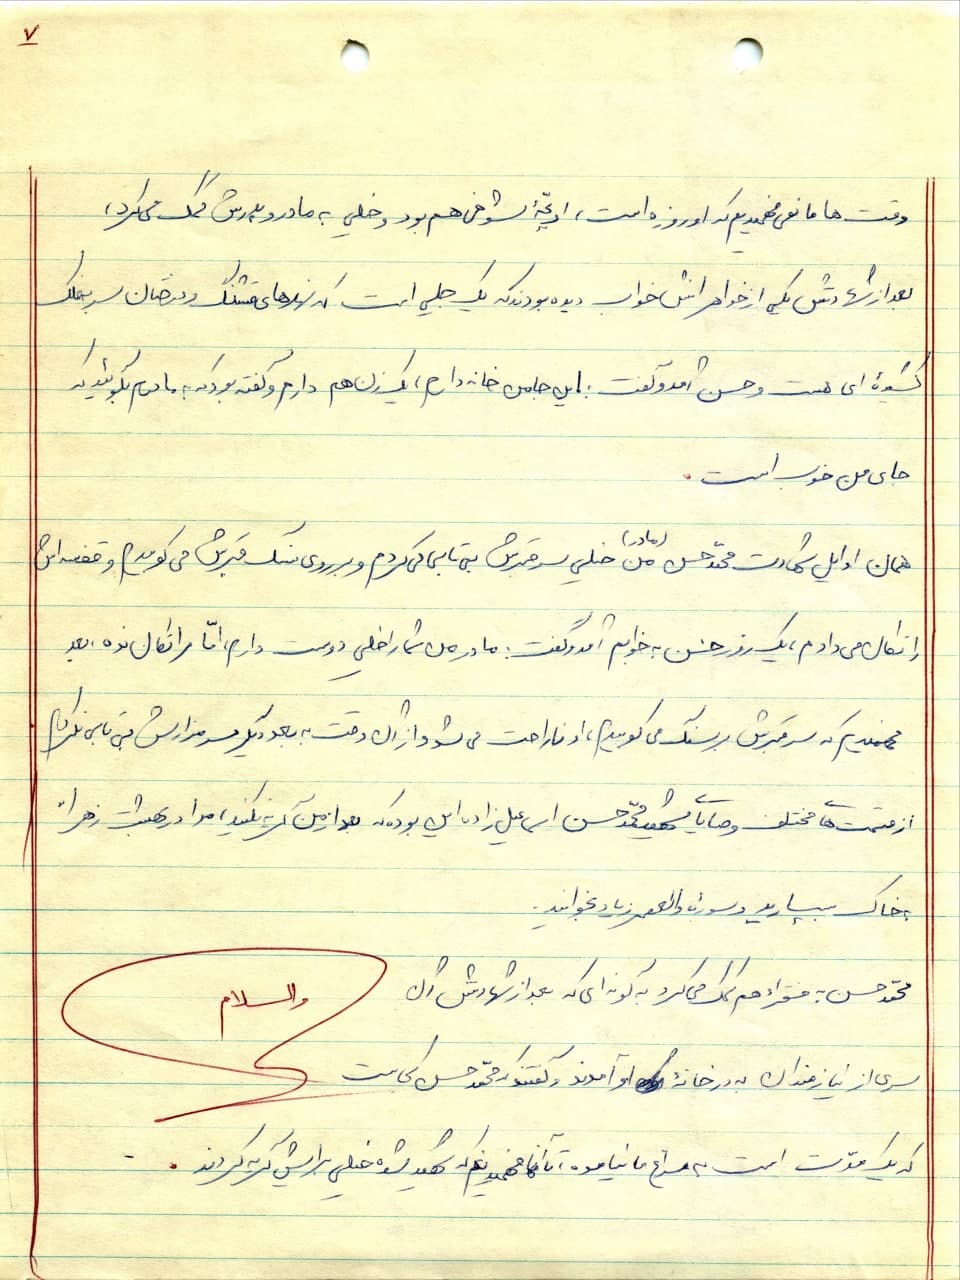 ۷
وقت ها ما نمی فهمیدیم که او روزه است، او بچّهٔ شوخی هم بود و خیلی به مادر و پدرش کمک می کرد،
بعد از شهادتش یکی از خواهرانش خواب دیده بودند که یک جایی است که نهرهای قشنگ و درختان سر بفلک
کشیده ای هست و حسن آمد و گفت: این جا من خانه دارم، یک زن هم دارم و گفته بود که به مادرم بگوئید که
جای من خوب است.
همان اوایل شهادت محمّدحسن من (مادر) خیلی سر قبرش بی تابی می کردم و بر روی سنگ قبرش می کوبیدم و قفسه اش
را تکان می دادم، یک روز حسن به خوابم آمد و گفت: مادر من شما را خیلی دوست دارم، امّا مرا تکان نده، بعد
فهمیدیم که سر قبرش بر سنگ می کوبیدم، او ناراحت می شود از آن وقت به بعد دیگر سر مزارش بی تابی نکردم
از قسمت های مختلف وصایای شهید محمّدحسن اسماعیل زاده این بوده که بعد از من گریه نکنید، مرا در بهشت زهرا
به خاک بسپارید و سوره والعصر زیاد بخوانید.
محمّد حسن به فقراء هم کمک می کرد به گونه ای که بعد از شهادتش آن
والسلام
سری از نیازمندان به در خانهٔ او آمدند و گفتند که محمّد حسن کجاست
که یک مدّت است به سراغ ما نیامده، تا آنها فهمیدند که شهید شده خیلی برایش گریه کردند.